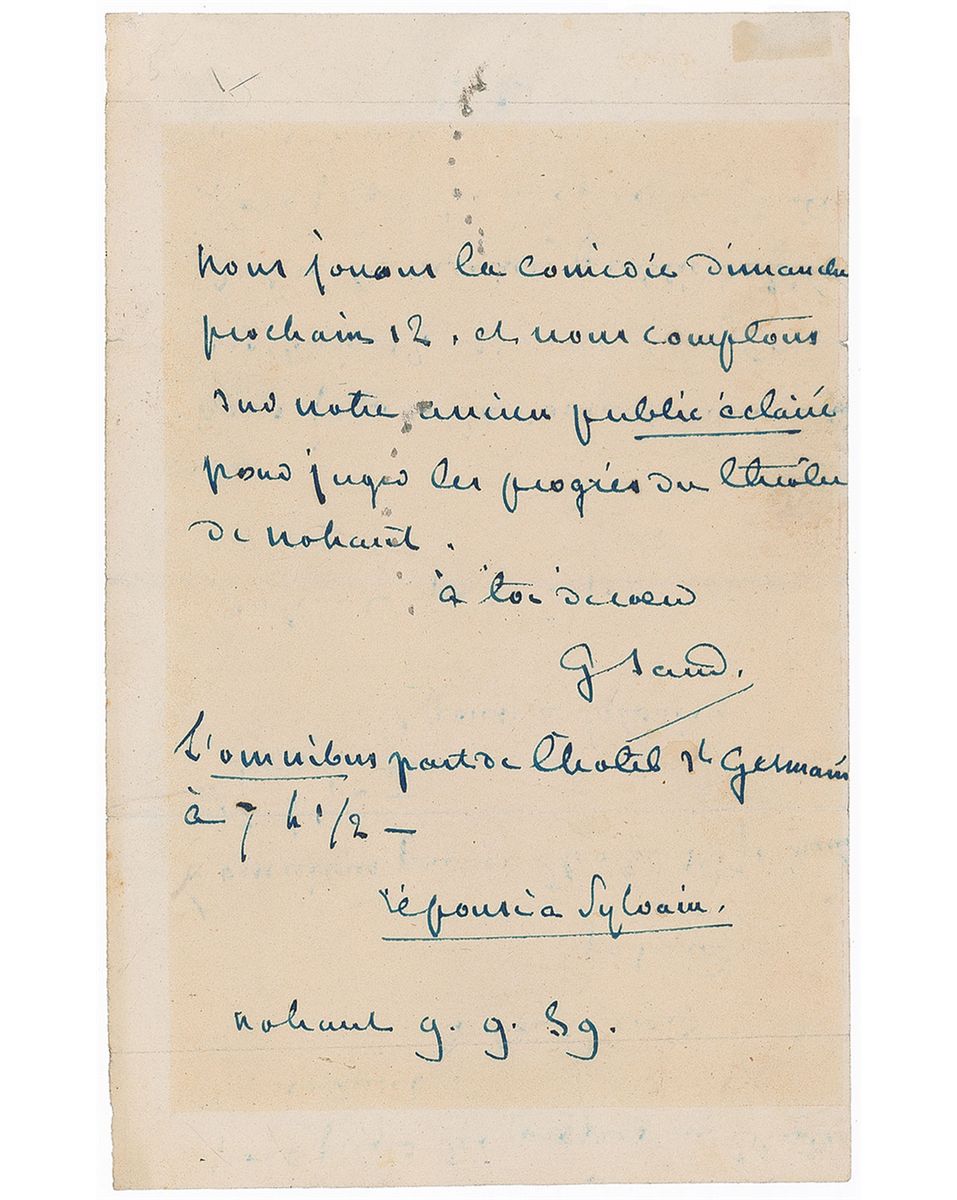 Nous jouons la comédie dimanche
prochain 12. et nous comptons
sur notre ancien public éclairé
pour juger les progrès du théâtre
de nohant.
à toi de cœur
G Sand.
L'omnibus part de l'hotel St Germain
à 7 h 1/2 —
réponse à Sylvain.
nohant 9. 9. 59.